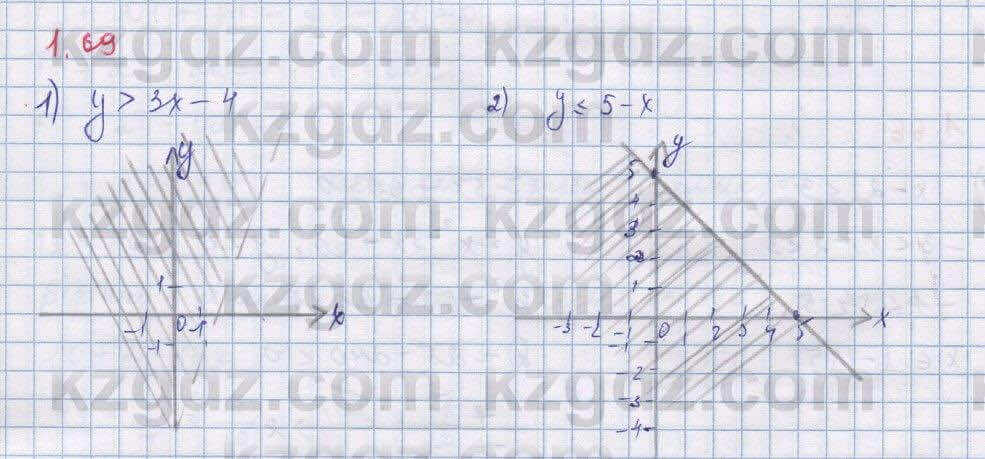 1.69
1) y > 3x - 4
2) y ≤ 5 - x
kzgdz.com kzgdz.com
kzgdz.com
kzgdz.com kzgdz.com
kzgdz.com
kzgdz.com kzgdz.com
y
1
-1 0 1 x
-1
y
5
4
3
2
1
-3 -2 -1 0 1 2 3 4 5 x
-1
-2
-3
-4